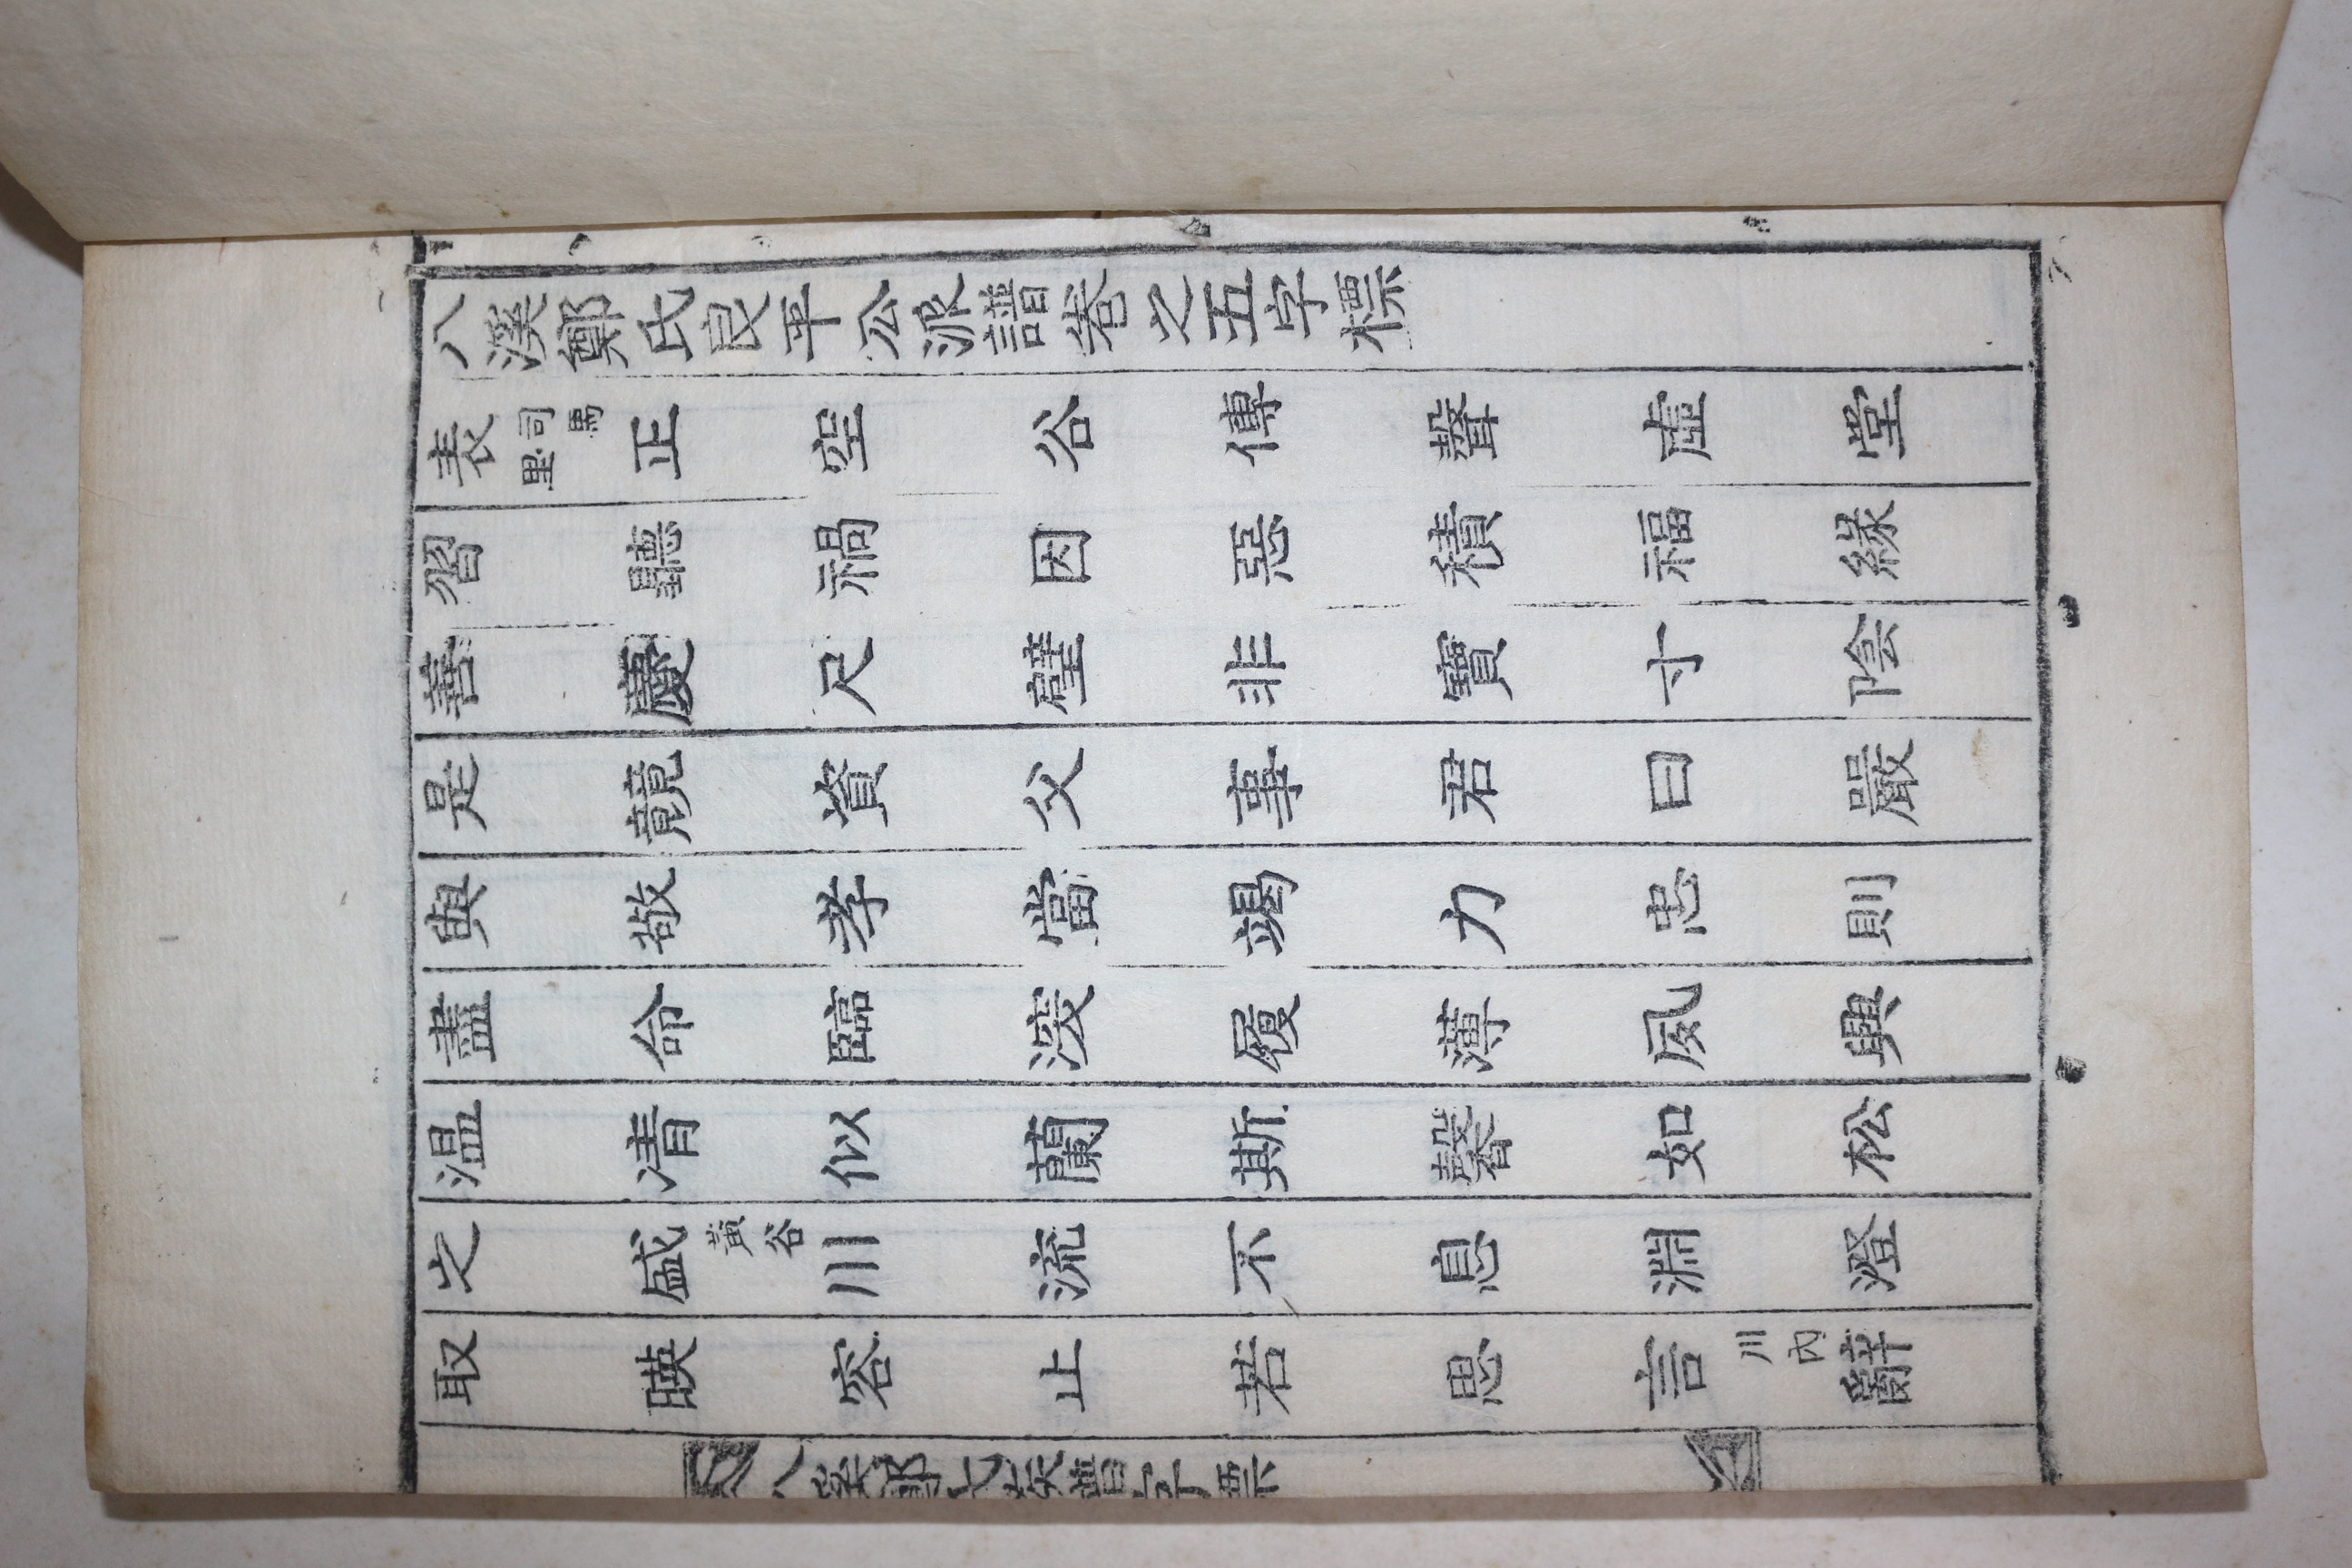 八溪鄭氏良平公派譜卷之五字標
表司馬里正空谷傳聲虛堂
習聽禍因惡積福緣
善慶尺璧非寶寸陰
是競資父事君曰嚴
與敬孝當竭力忠則
盡命臨深履薄夙興
温凊似蘭斯馨如松
之盛黃谷川流不息淵澄
取暎容止若思言川內辭
八溪鄭氏族譜字標